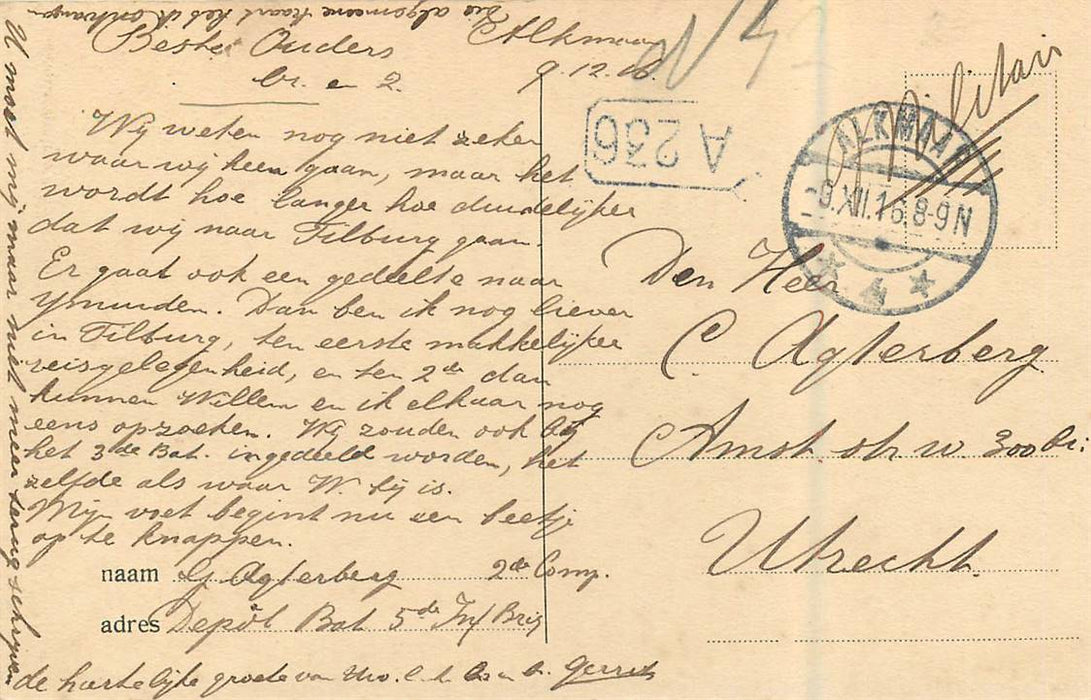 Die algemeene kaart heb ik ontvangen
Beste Ouders
br. en z.
Alkmaar
9.12.16.
Wij weten nog niet zeker
waar wij heen gaan, maar het
wordt hoe langer hoe duidelijker
dat wij naar Tilburg gaan.
Er gaat ook een gedeelte naar
Ymuiden. Dan ben ik nog liever
in Tilburg, ten eerste makkelijker
reisgelegenheid, en ten 2de dan
kunnen Willem en ik elkaar nog
eens opzoeken. Wij zouden ook bij
het 3de Bat. ingedeeld worden, het
zelfde als waar W. bij is.
Mijn voet begint nu een beetje
op te knappen.
naam G. Agterberg 2de Comp.
adres Depôt Bat 5de Inf Brig
de hartelijke groete van Gerrit
U moet mij maar niet meer terug schrijven
Militair
A 236
ALKMAAR
-9.XII.16.8-9N
4
Den Heer
C. Agterberg
Amst. str. w 300 br.
Utrecht.